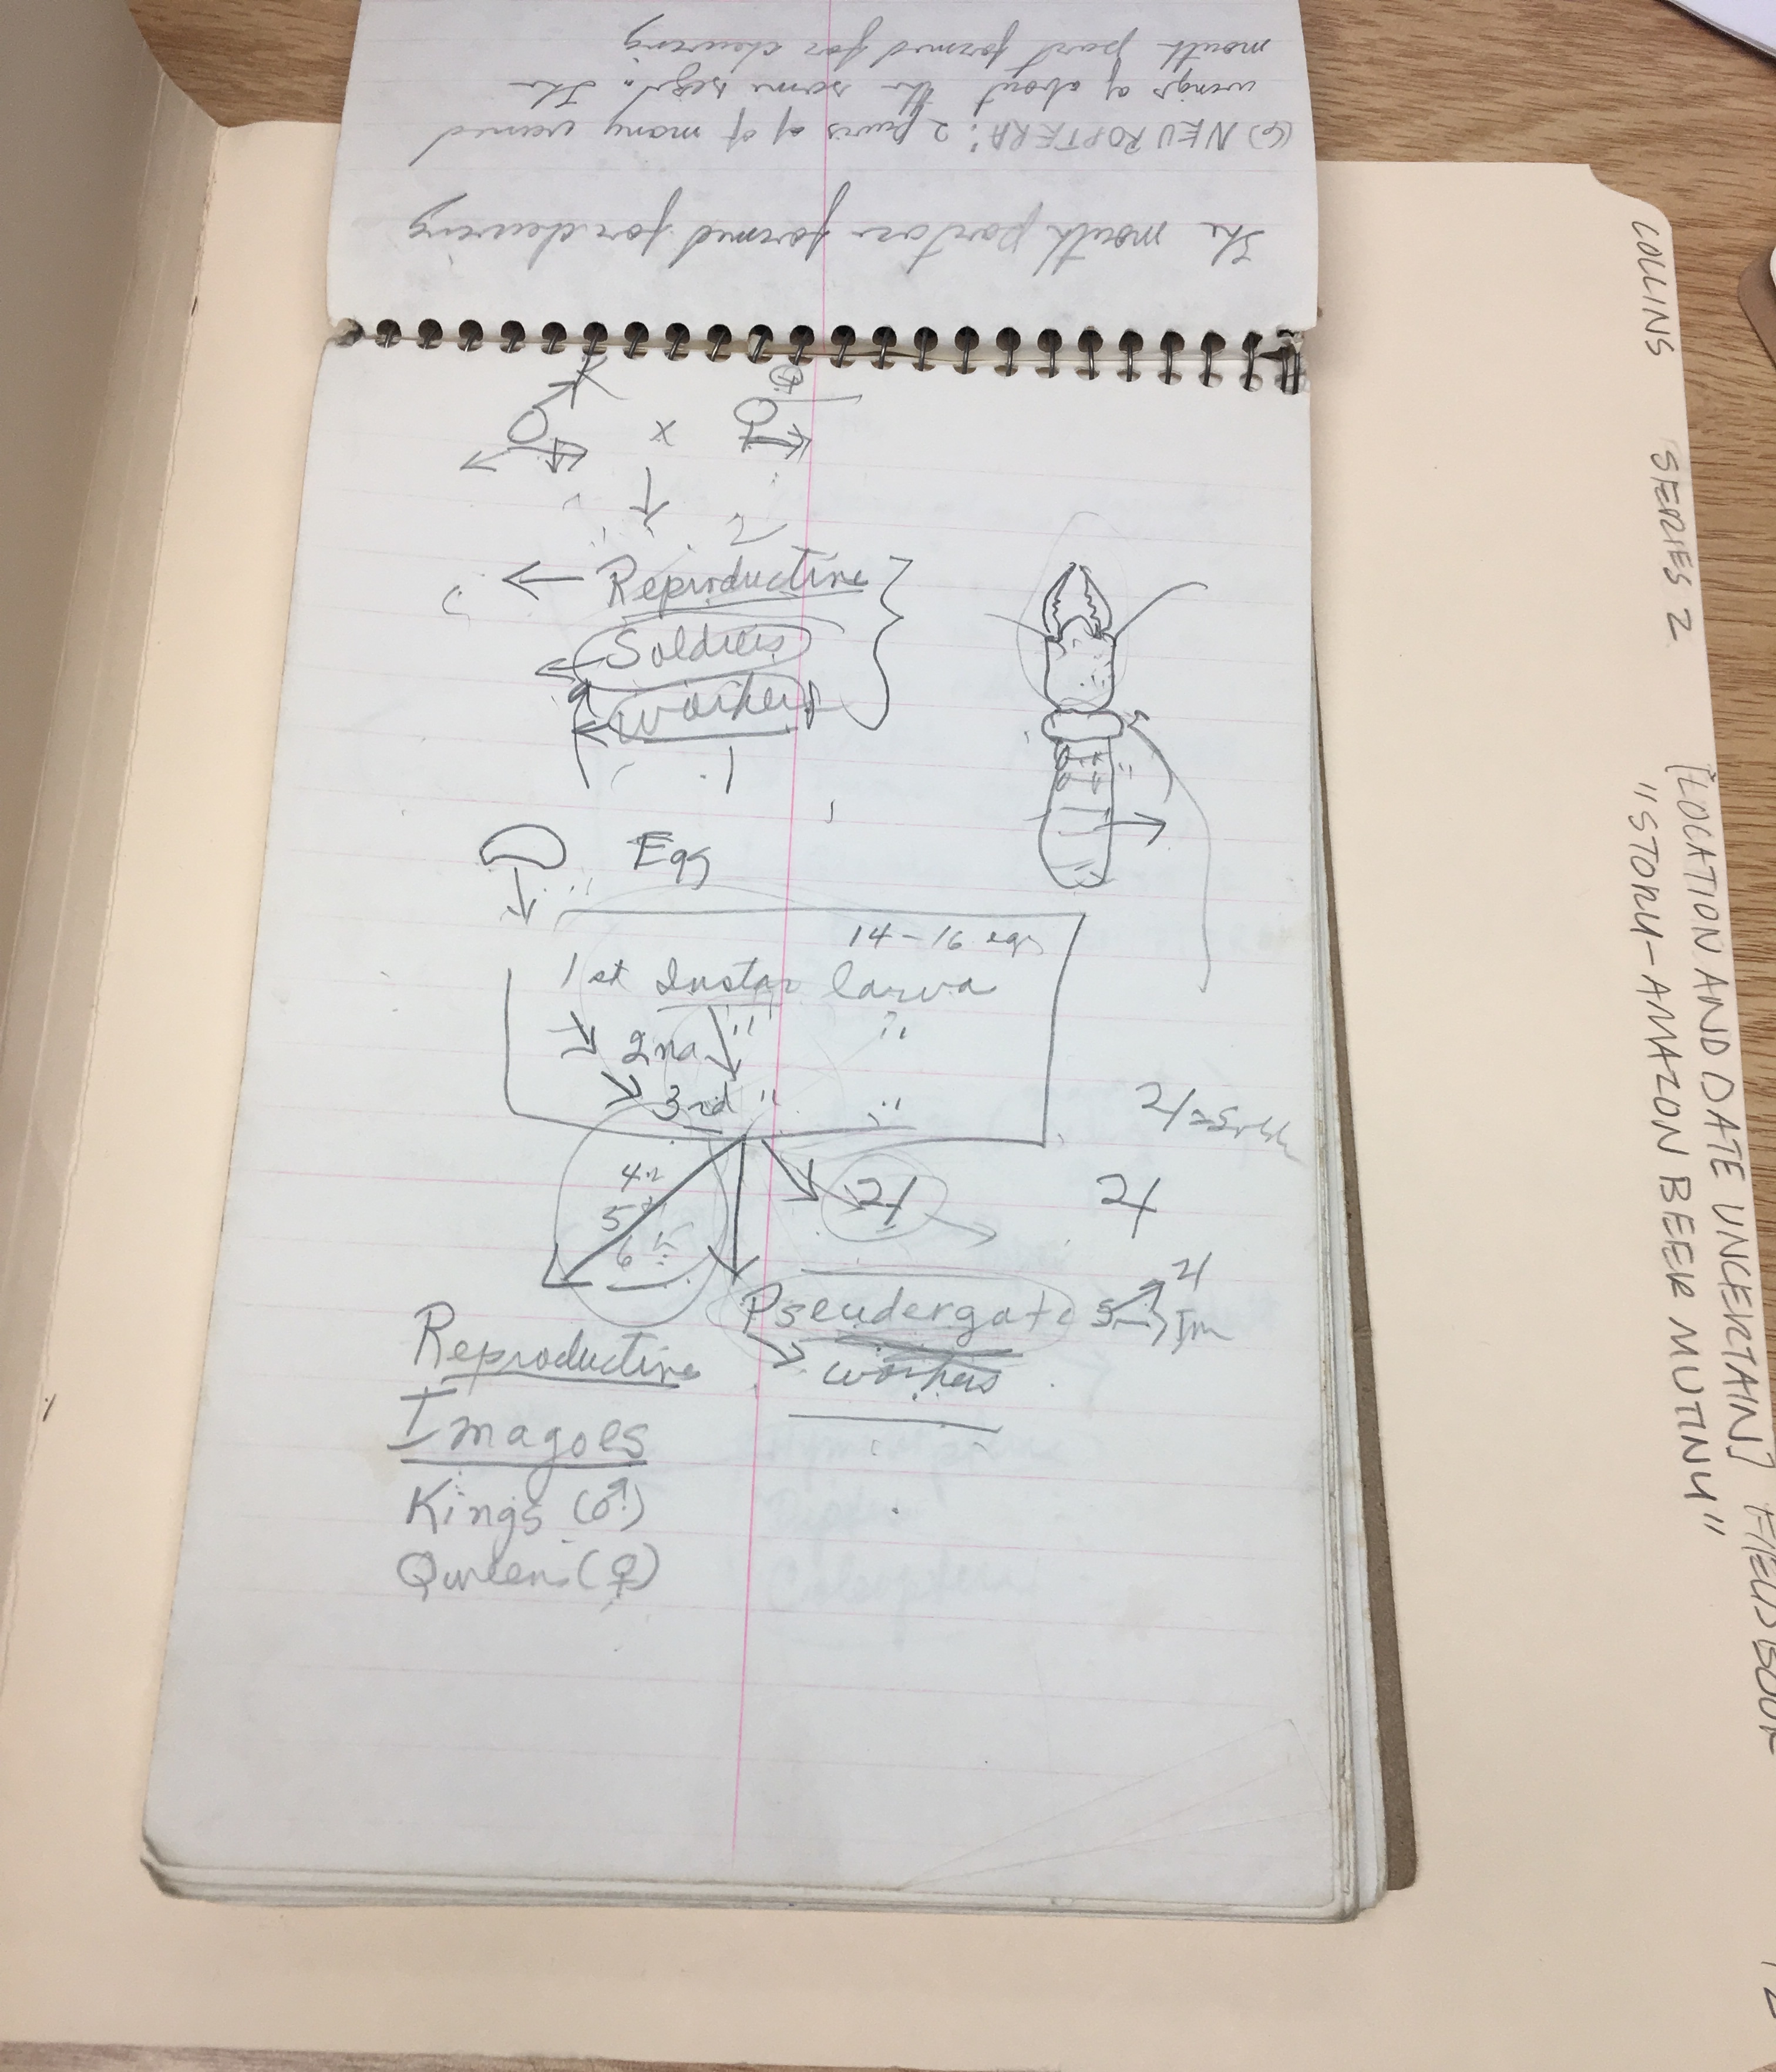 The mouth part are formed for chewing
(6) NEUROPTERA: 2 pairs of of many veined
wings of about the same
mouth part formed for chewing
♀ x ♀
Reproductive
Soldiers
workers
Egg
14-16 egs
1st Instar larva
2nd " "
3rd " "
4th
5th
6th
Pseudergate
workers
Reproductive
Imagoes
Kings (♂)
Queens (♀)
COLLINS SERIES 2 [LOCATION AND DATE UNCERTAIN] FIELD BOOK
"STORY-AMAZON BEER MUTINY"